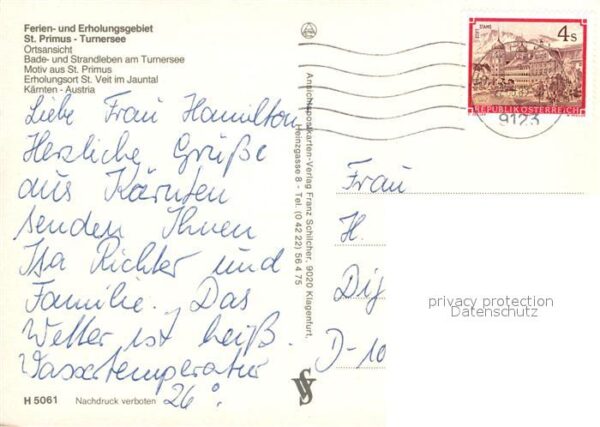 Ferien- und Erholungsgebiet
St. Primus - Turnersee
Ortsansicht
Bade- und Strandleben am Turnersee
Motiv aus St. Primus
Erholungsort St. Veit im Jauntal
Kärnten - Austria
Liebe Frau Hamilton
Herzliche Grüße
aus Kärnten
senden Ihnen
Isa Richter und
Familie. Das
Wetter ist heiß.
Wassertemperatur
26°.
H 5061
Nachdruck verboten
Ansichtspostkarten-Verlag Franz Schilcher, 9020 Klagenfurt,
Heinzgasse 8 - Tel. (0 42 22) 56 4 75
STIFT STAMS
4s
REPUBLIK ÖSTERREICH
9123
Frau
H.
Dig
D-10
privacy protection
Datenschutz